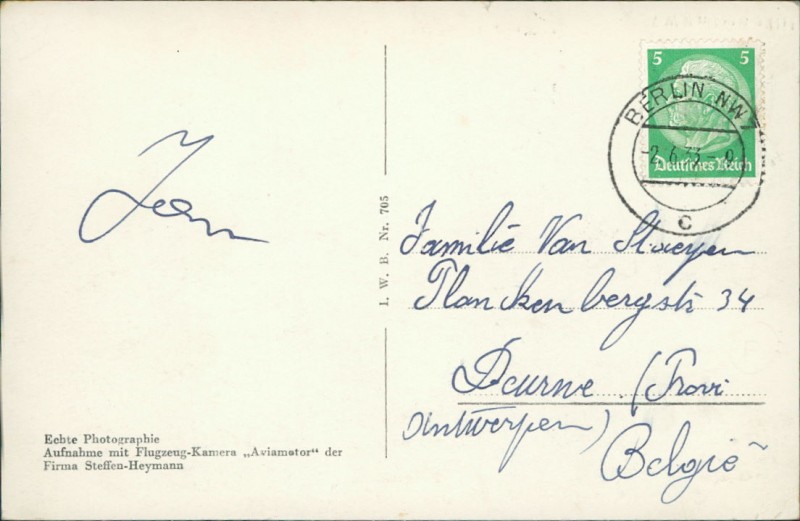 Jean
Echte Photographie
Aufnahme mit Flugzeug-Kamera „Aviamotor“ der
Firma Steffen-Heymann
I. W. B. Nr. 705
5 5
Deutsches Reich
BERLIN NW7
-2.6.33-9
C
Familie Van Staeyen
Planckenbergstr 34
Deurne (Provi
Antwerpen)
België